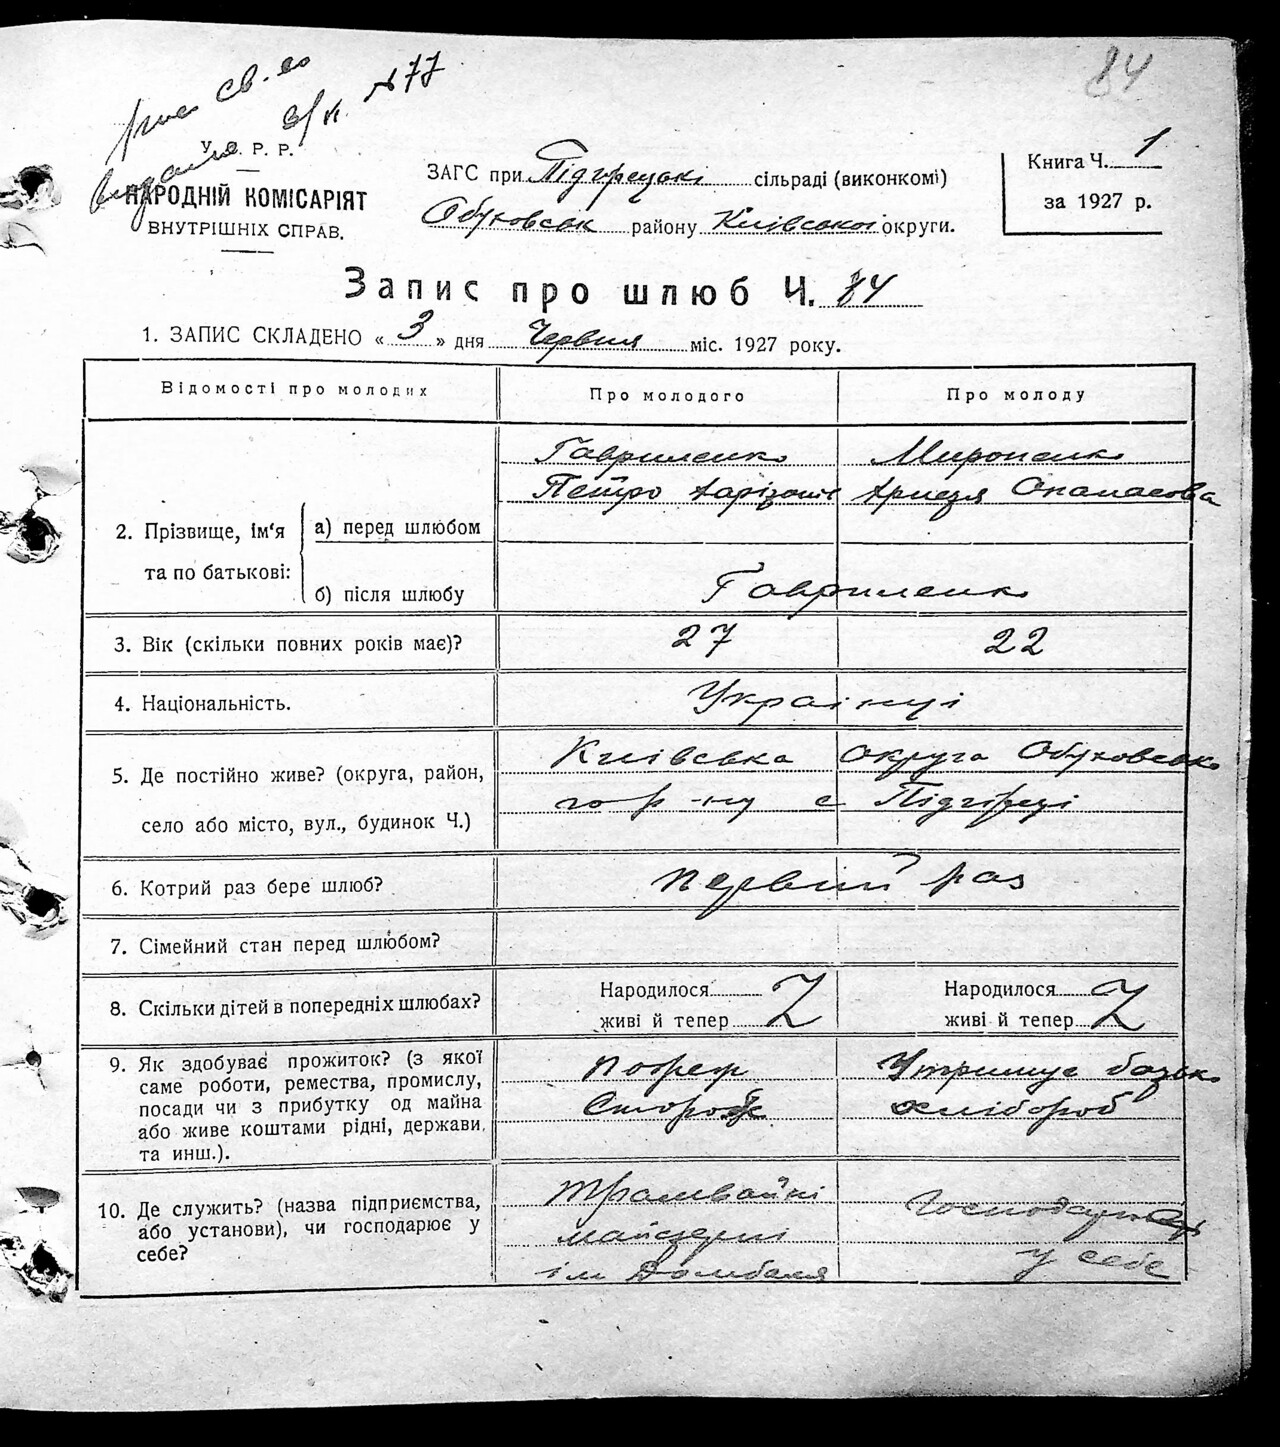 84
св-во
№ 77
У. С. Р. Р.
НАРОДНІЙ КОМІСАРІЯТ
ВНУТРІШНІХ СПРАВ.
ЗАГС при Підгірецькі сільраді (виконкомі)
Обуховськ району Київської округи.
Книга Ч. 1
за 1927 р.
Запис про шлюб Ч. 84
1. ЗАПИС СКЛАДЕНО « 3 » дня Червня міс. 1927 року.
Відомості про молодих
Про молодого
Про молоду
2. Прізвище, ім‘я
та по батькові:
а) перед шлюбом
Гавриленко
Петро
Мироненко
Опанасова
б) після шлюбу
Гавриленко
3. Вік (скільки повних років має)?
27
22
4. Національність.
Українці
5. Де постійно живе? (округа, район,
село або місто, вул., будинок Ч.)
Київська округа Обуховсько
го р-ну с Підгірці
6. Котрий раз бере шлюб?
первий раз
7. Сімейний стан перед шлюбом?
8. Скільки дітей в попередніх шлюбах?
Народилося
живі й тепер
Народилося
живі й тепер
9. Як здобуває прожиток? (з якої
саме роботи, ремества, промислу,
посади чи з прибутку од майна
або живе коштами рідні, держави
та инш.).
Сторож
Утримує батько
хлібороб
10. Де служить? (назва підприємства,
або установи), чи господарює у
себе?
Трамвайні
майстерні
ім Домбаля
у себе